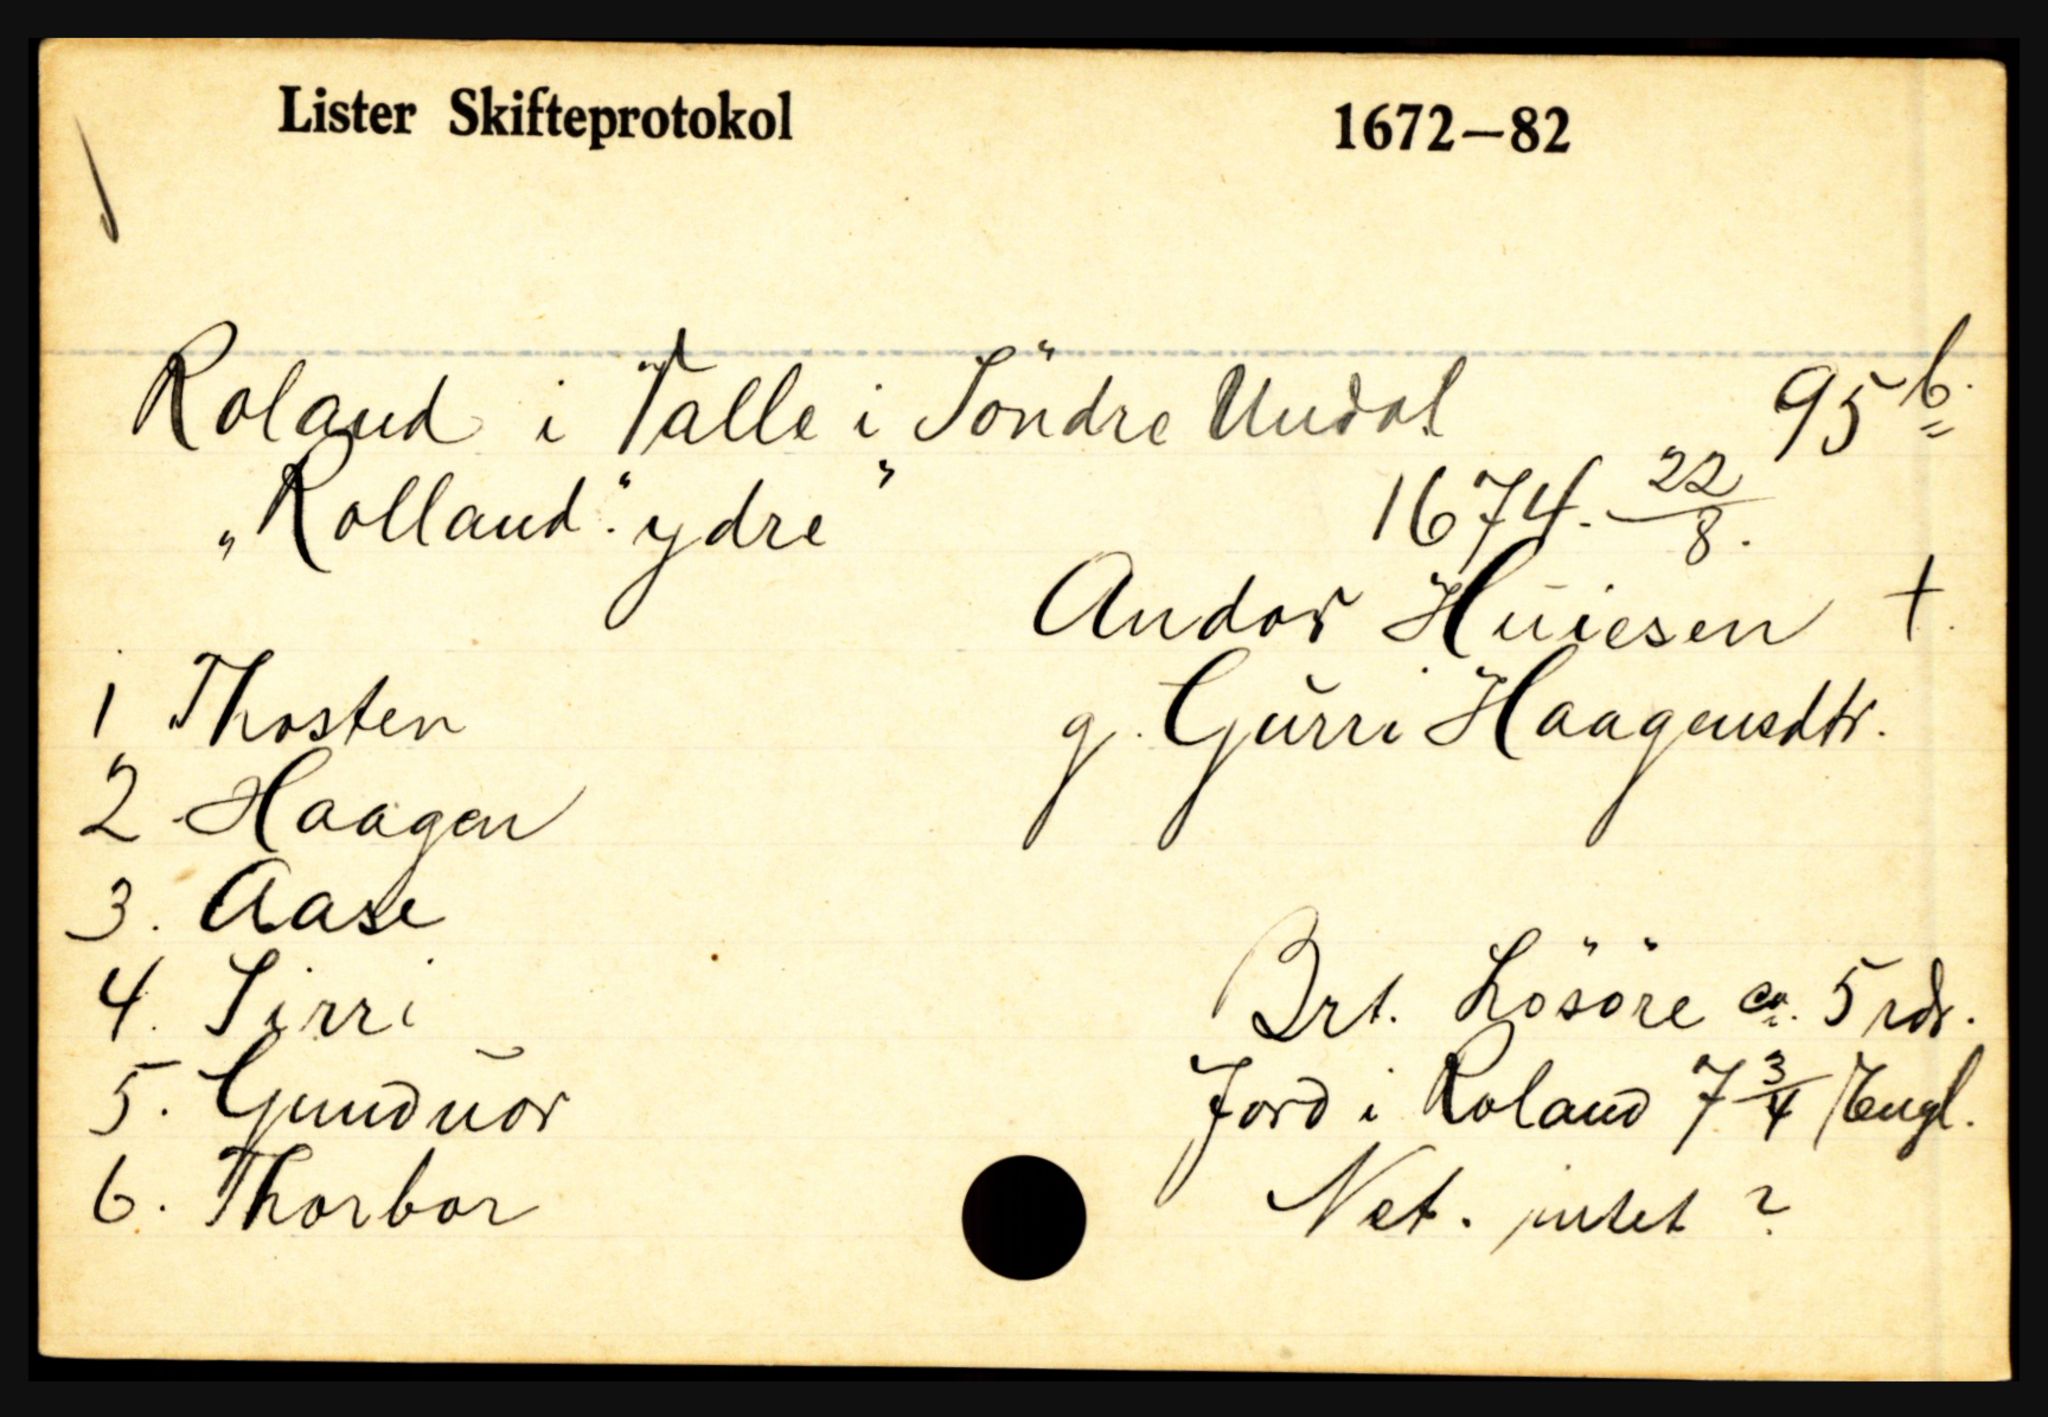 Lister Skifteprotokol 1672–82
Roland i Valle i Söndre Undal 95 b.
„Rolland" ydre" 1674. 22/8.
Andor Huiesen †.
1 Thosten g. Gurri Haagensdtr.
2 Haagen
3. Aase
4. Sirri Brt. Lösöre ca. 5 rdr.
5. Gunduor Jord i Roland 7 3/4 Engl.
6. Thorbor Net. intet ?